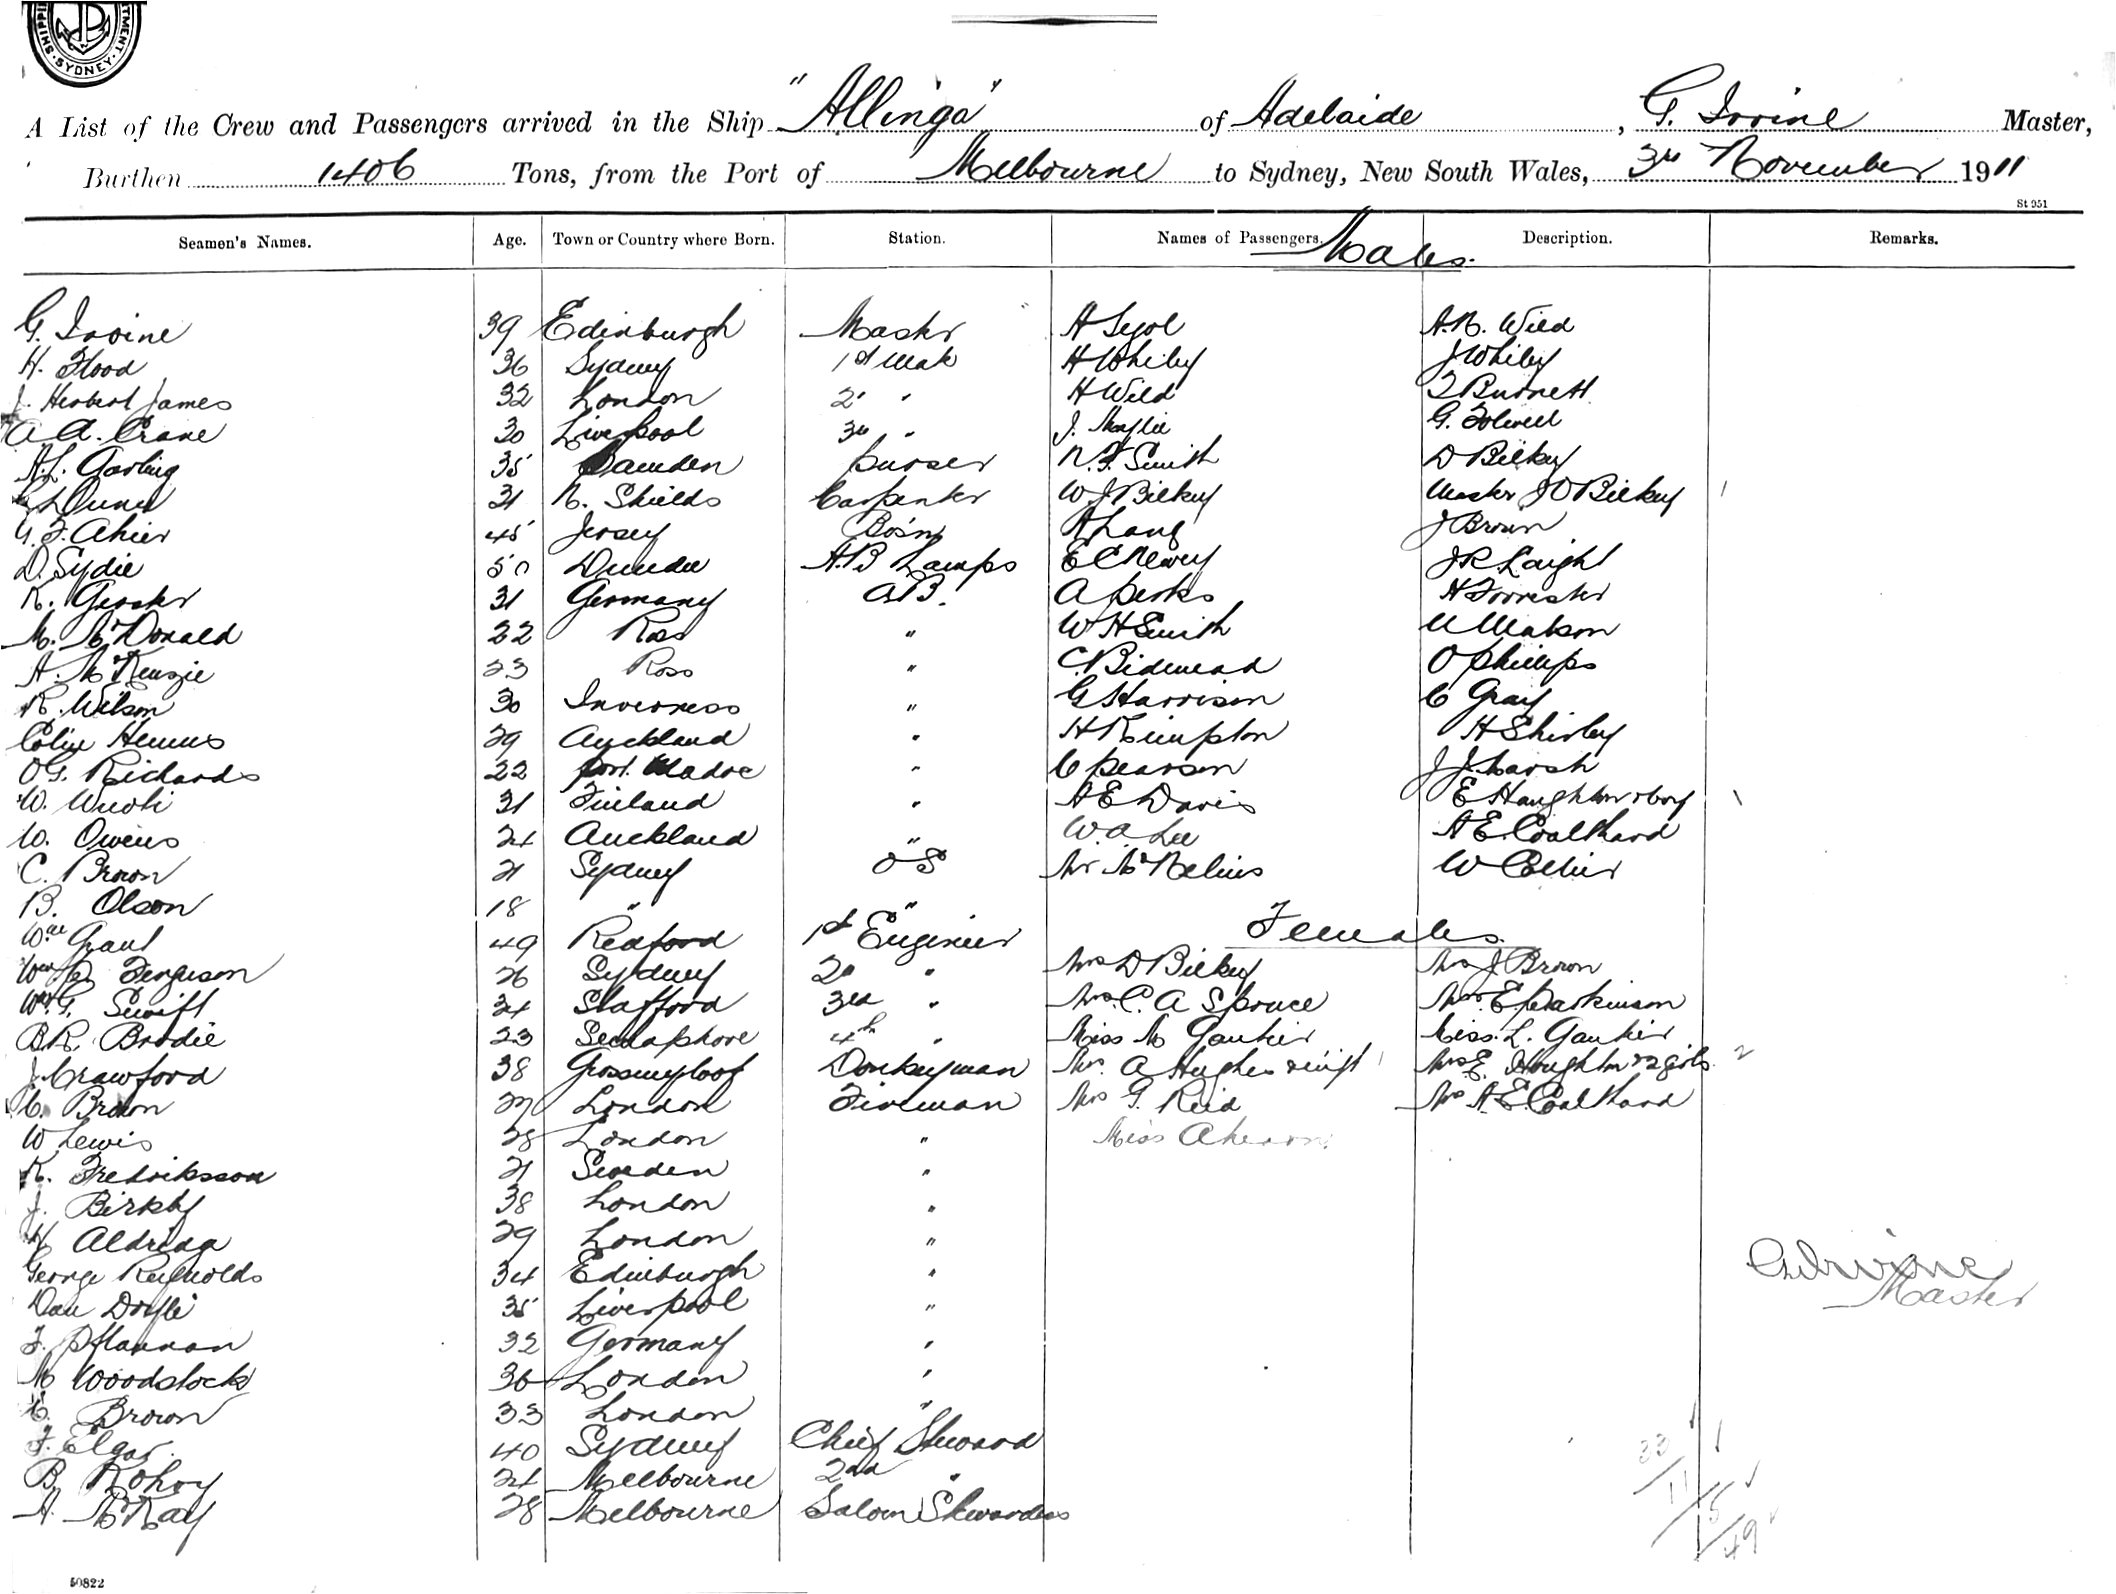 SHIPPI TMENT. SYDNEY.
A List of the Crew and Passengers arrived in the Ship "Allinga" of Adelaide, G. Irvine Master,
Burthen 1406 Tons, from the Port of Melbourne to Sydney, New South Wales, 3rd November 1911
St 951
Seamen's Names. Age. Town or Country where Born. Station. Names of Passengers. Description. Remarks.
Males.
G. Irvine 39 Edinburgh Master A.R. Wild
H. Flood 36 Sydney 1st Mate H Whiley J Whiley
J. Herbert James 32 London 2" " H Wild T Burnett
A.A. Crane 30 Liverpool 3rd " J. G. Folwell
A.L. Garling 35 Camden purser N.F. Smith D Bilkey
Dunn 31 N. Shields Carpenter W J Bilkey Master J D Bilkey 1
G.F. Ahier 45 Jersey Bo'sn A Lang J Brown
D. Sydie 50 Dundee A.B Lamps E C Newey J R Laight
K. Gerster 31 Germany A.B. A perks H Forrester
M. McDonald 22 Ross " W H Smith Watson
A. McKenzie 23 Ross " C. Bidmead O phillips
R. Wilson 30 Inverness " G Harrison C Gray
Colin Hemus 29 Auckland " H Kimpton H Shirley
O G. Richards 22 port Madoc " C pearson J J Marsh
W. 31 Finland " A E Davis E Haughton & boy 1
W. Owens 24 Auckland " W.A. Lee A E. Coalthard
C. Brown 21 Sydney O S Mr McNelius W Collier
B. Olson 18 " "
Wm Grant 49 Redford 1st Engineer Females.
Wm Ferguson 26 Sydney 2" " Mrs D Bilkey Mrs J Brown
Wm G. Swift 24 Stafford 3rd " Mrs. C. A Spruce Mrs E parkinson
B R. Brodie 23 Semaphore 4th " Miss M Gautier Miss. L. Gautier
J. Crawford 38 Crossmyloof Donkeyman Mrs. A Hughes & inft 1 Mrs E. Houghton & 2 girls 2
C. Brown 27 London Fireman Mrs G. Reid Mrs A.E. Coalthard
W Lewis 28 London " Miss Ahearn
K. Fredriksson 21 Sweden "
J. Birkby 38 London "
Aldridge 29 London "
George Reynolds 34 Edinburgh "
Dan Doyle 35 Liverpool "
F. Pflannan 32 Germany "
M Woodstock 36 London "
C. Brown 33 London "
F. Elgar 40 Sydney Chief Steward
B. Rohoy 24 Melbourne 2nd "
A. McKay 28 Melbourne Saloon Stewardess
G Irvine
Master
33
11
5
49
50822